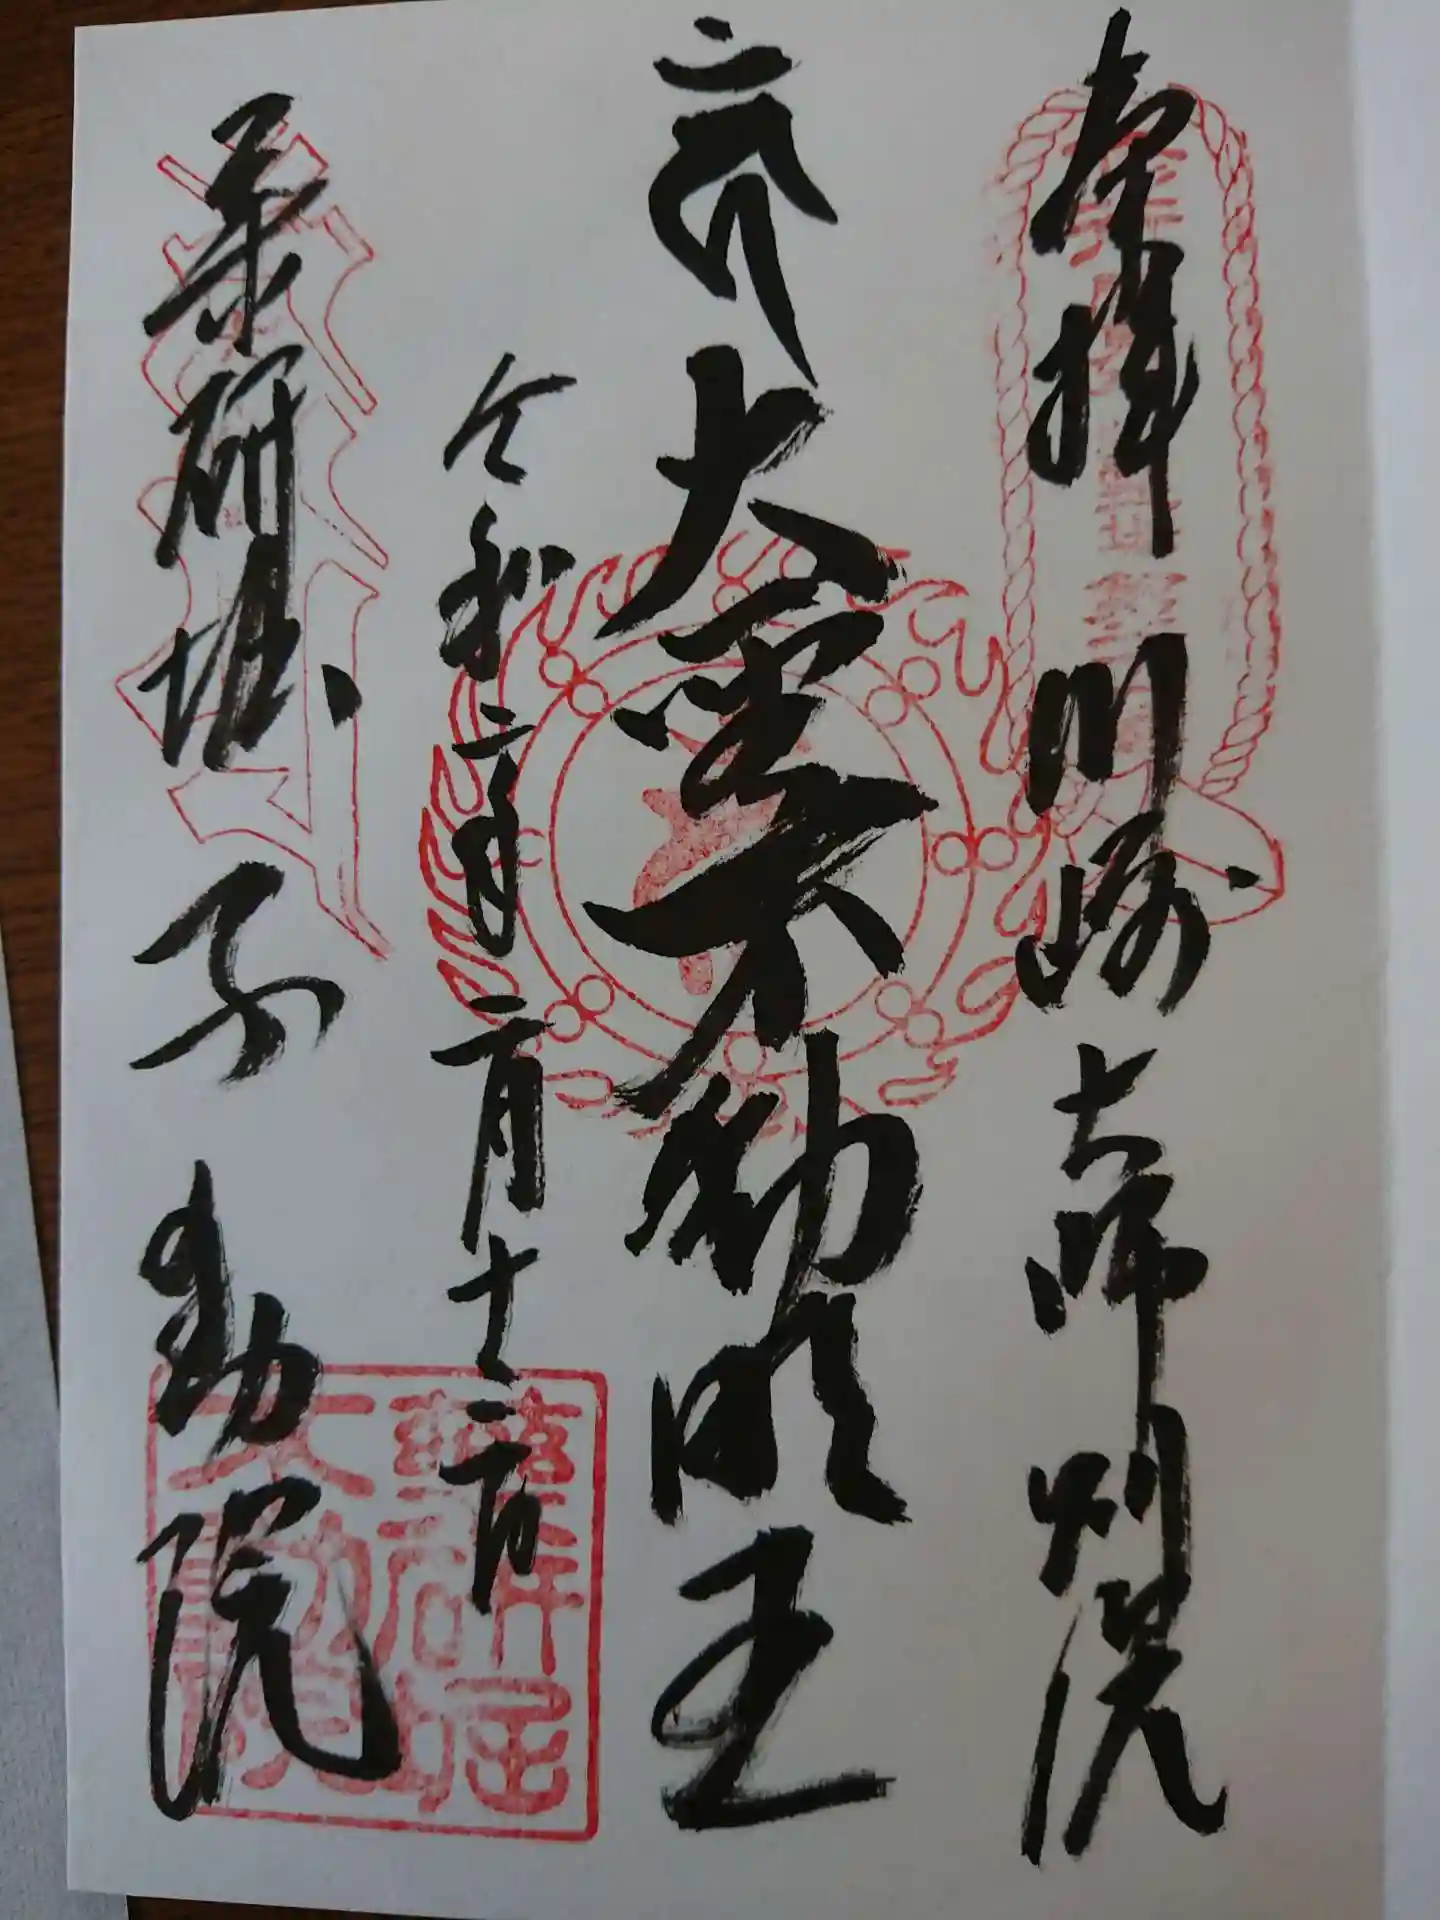 奉拝 川崎大師別院
大聖不動明王
令和二年二月十二日
薬研堀 不動院
薬研堀
不動院